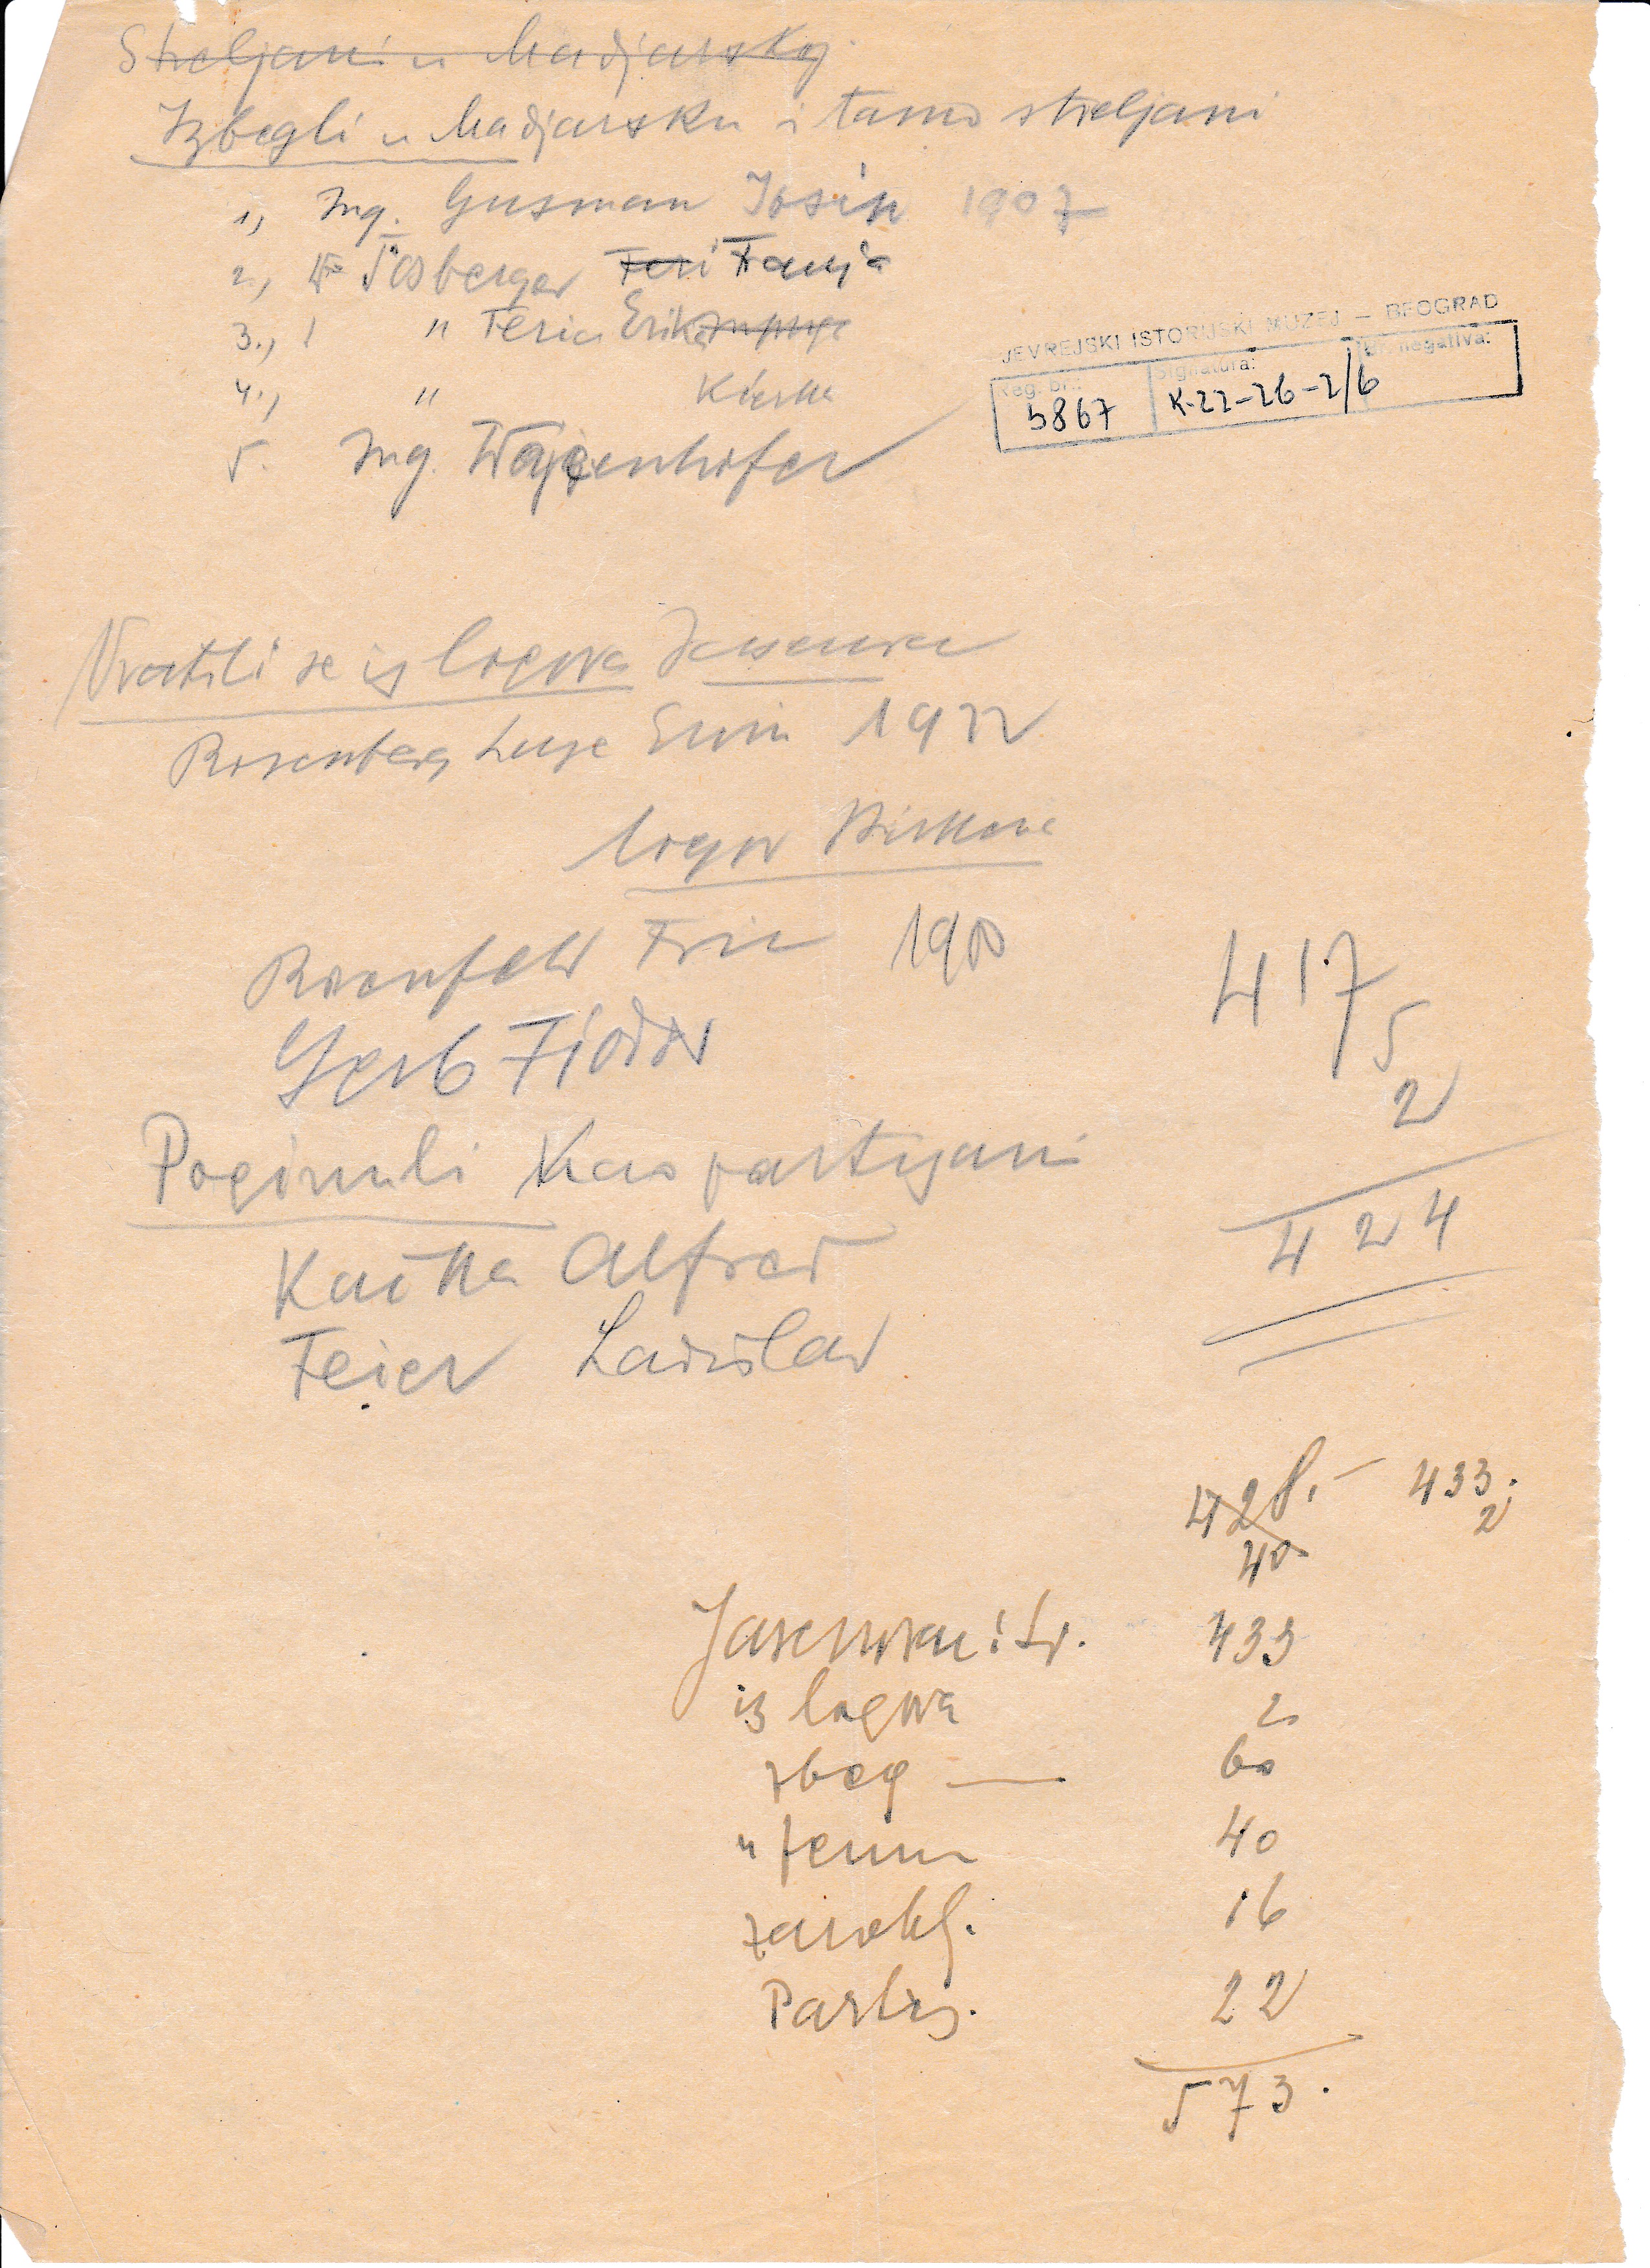 Streljani u Madjarskoj.
Izbegli u Madjarsku i tamo streljani
1, Ing. Gusman Josip 1907
2., Tosberger Feri Franja
3., " Feric Erik
4., "
5. Ing. Wagenhofer
JEVREJSKI ISTORIJSKI MUZEJ – BEOGRAD
Reg. br.: Signatura: Br. negativa:
5867 K-22-26-2/6
Vratili se iz logora Jasenovac
Rosenberg 1922
logor
Rosenfeld Fric 1900
417
Gerb Fiodor
5
2
Poginuli kao partizani
424
Alfred
Feier Ladislav
428. – 433.
2
40
Jasenovac i St. 433
iz logora 2
zbeg — 60
" 40
zaroblj. 16
Partiz. 22
573.